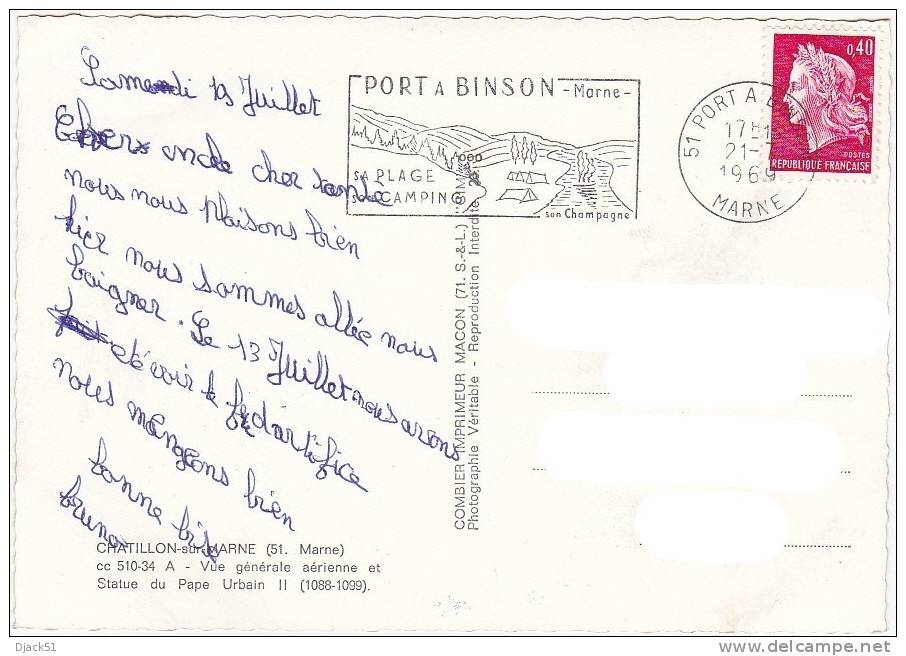 Samedi 19 Juillet
Cher oncle cher tante
nous nous plaisons bien
hier nous sommes allée nous
baigner. Le 13 Juillet nous avons
été voir le feu d'artifice
nous mangeons bien
bonne bise
bruno
CHATILLON-sur-MARNE (51. Marne)
cc 510-34 A - Vue générale aérienne et
Statue du Pape Urbain II (1088-1099).
COMBIER IMPRIMEUR MACON (71. S.-&-L.) "CIM"
Photographie Véritable - Reproduction Interdite
PORT A BINSON - Marne -
SA PLAGE
son CAMPING
son Champagne
51 PORT A
17H
21-7
1969
MARNE
0,40
POSTES
REPUBLIQUE FRANÇAISE
Djack51
delcampe.net